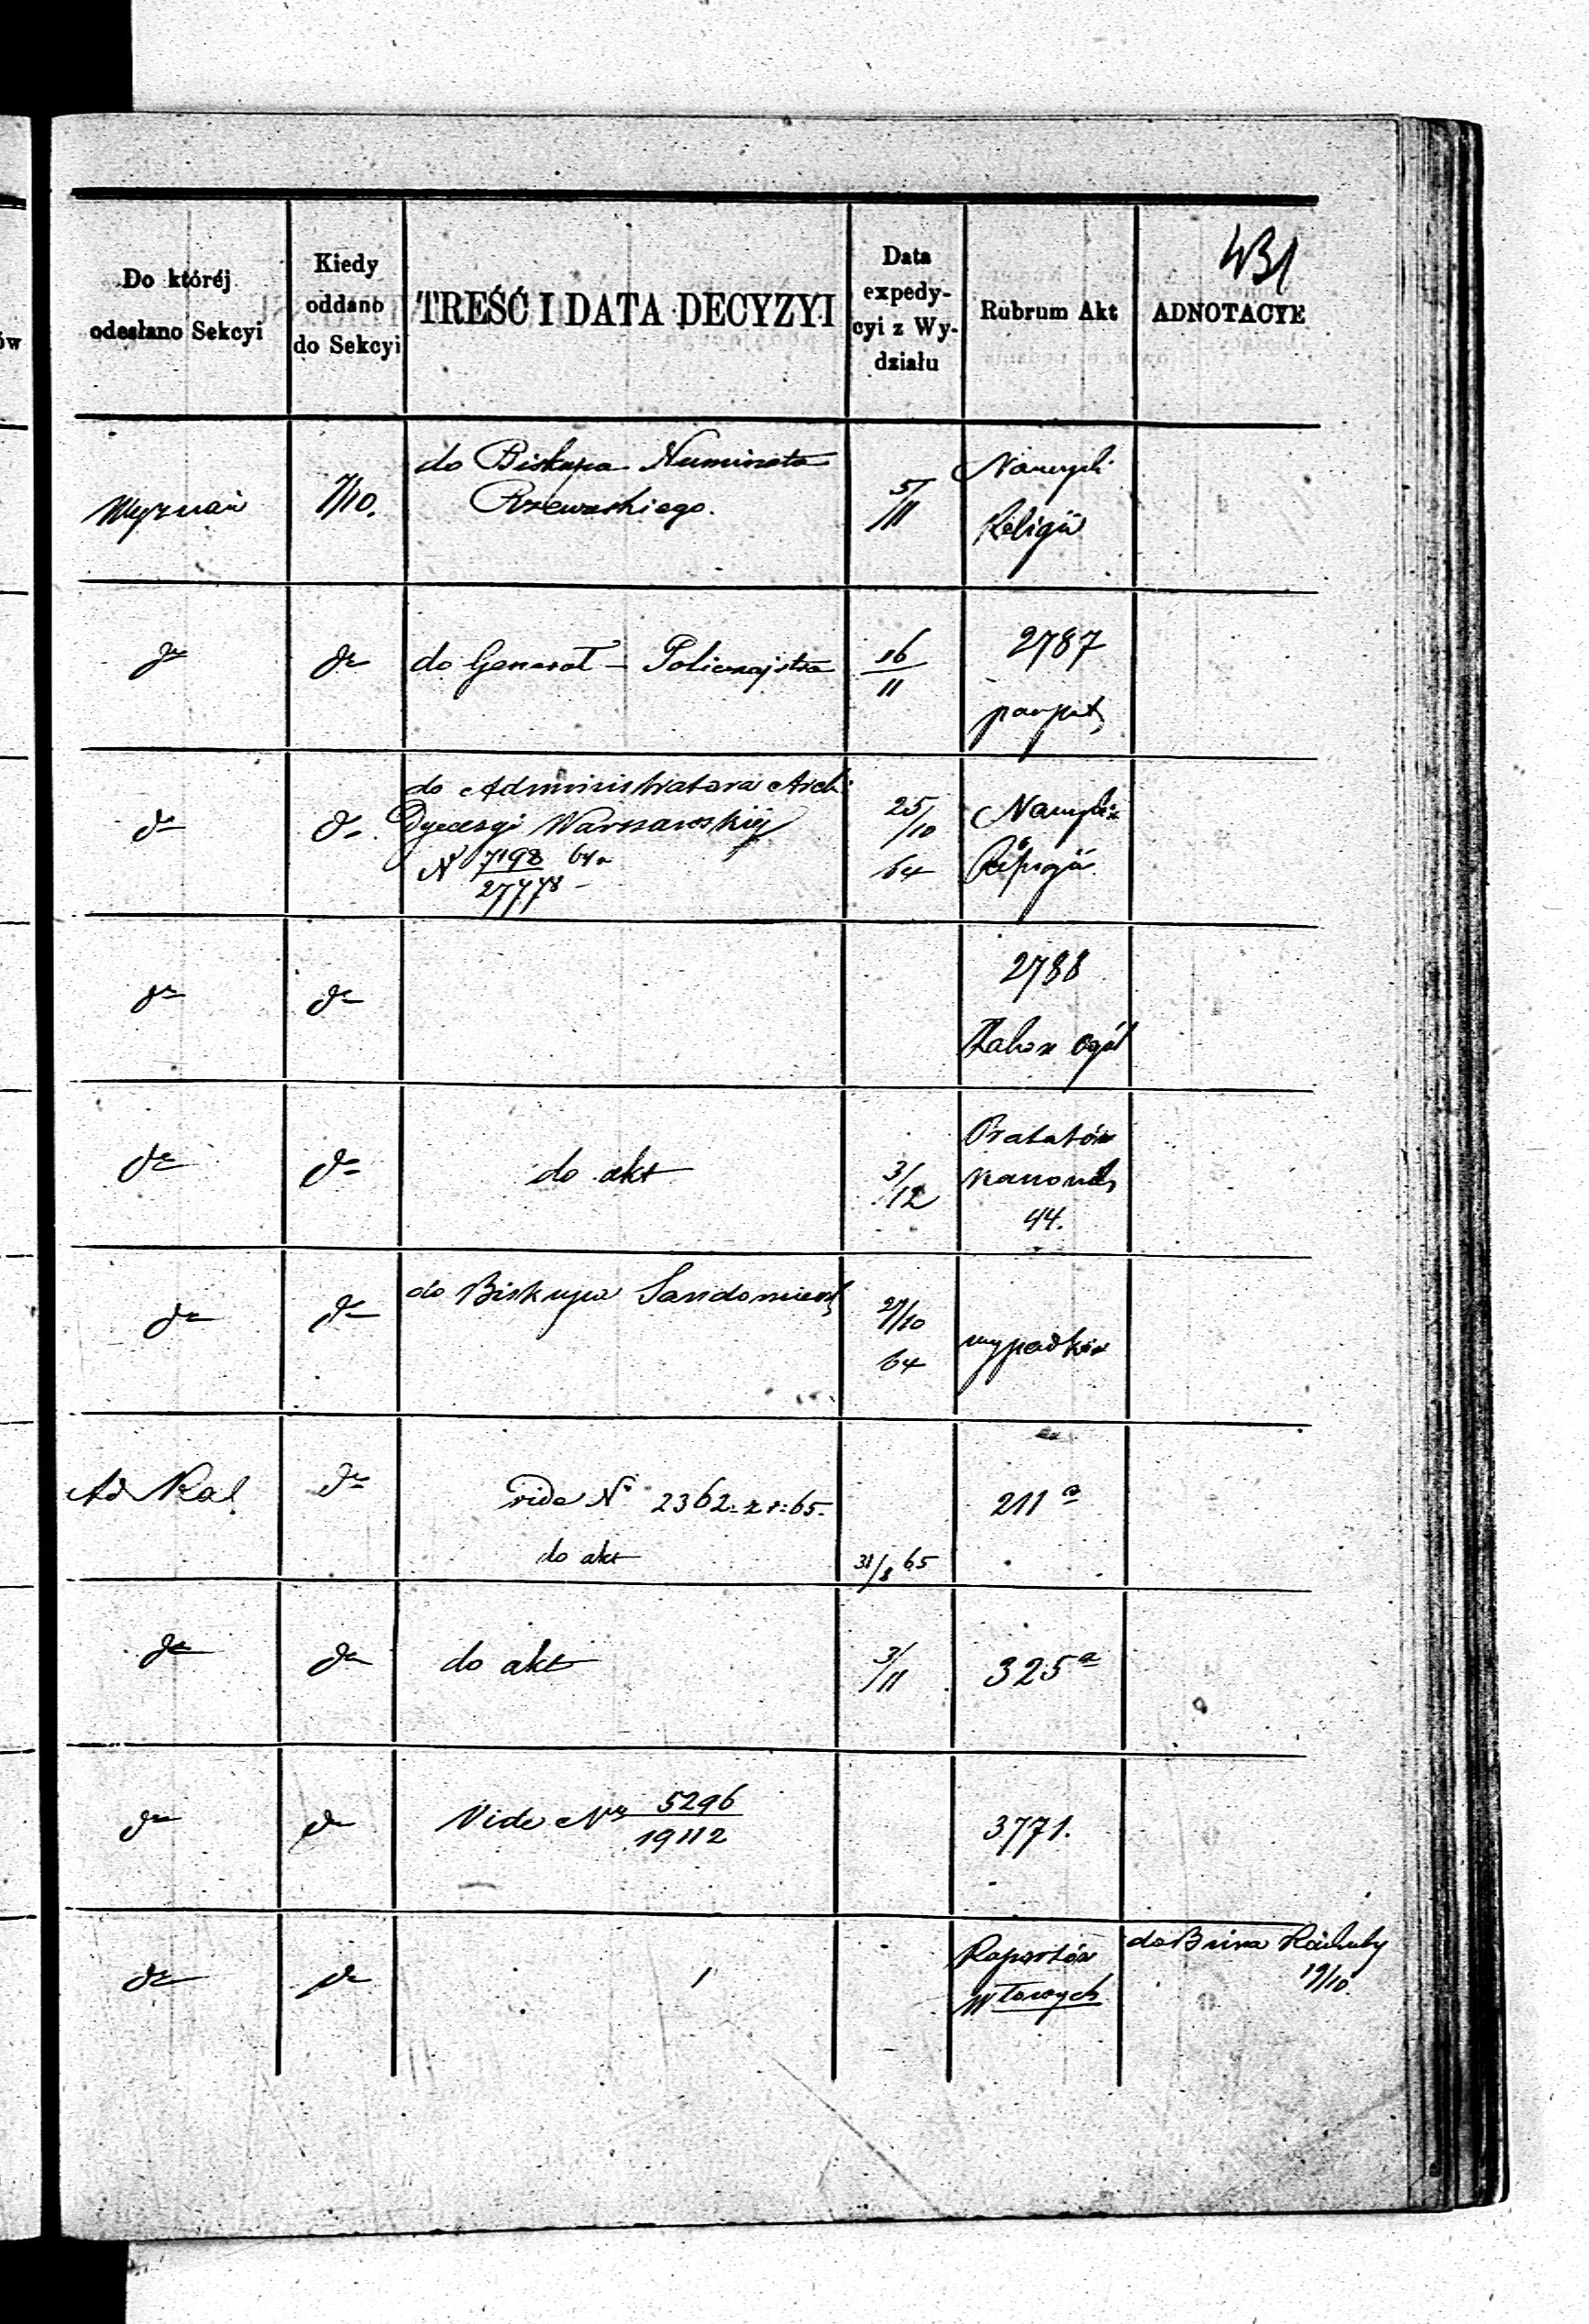 431
Do któréj
odesłano Sekcyi
Kiedy
oddano
do Sekcyi
TREŚĆ I DATA DECYZYI
Data
expedy-
cyi z Wy-
działu
Rubrum Akt
ADNOTACYE
ów
Wyznań
7/10.
do Biskupa Numinata
Rzewuskiego.
5/11
Religii
do
do
do Generał - Policmajstra
16/11
2787
do
do
do Administratora Archi
Dyecezyi Warszawskiéj
N 7198/27778 64 r
25/10
64
do
do
2788
Zakon Ogól
do
do
do akt
3/12
Prałatów
Kanonik
44.
do
do
do Biskupa Sandomiersk
27/10
64
wypadków
Ad Kal
do
vide N° 2362 z r: 65.
do akt
31/8 65
211 a
do
do
do akt
3/11
325 a
do
do
Vide Nr 5296/19112
3771.
do
do
Raportów
do Biura Rachuby
19/10